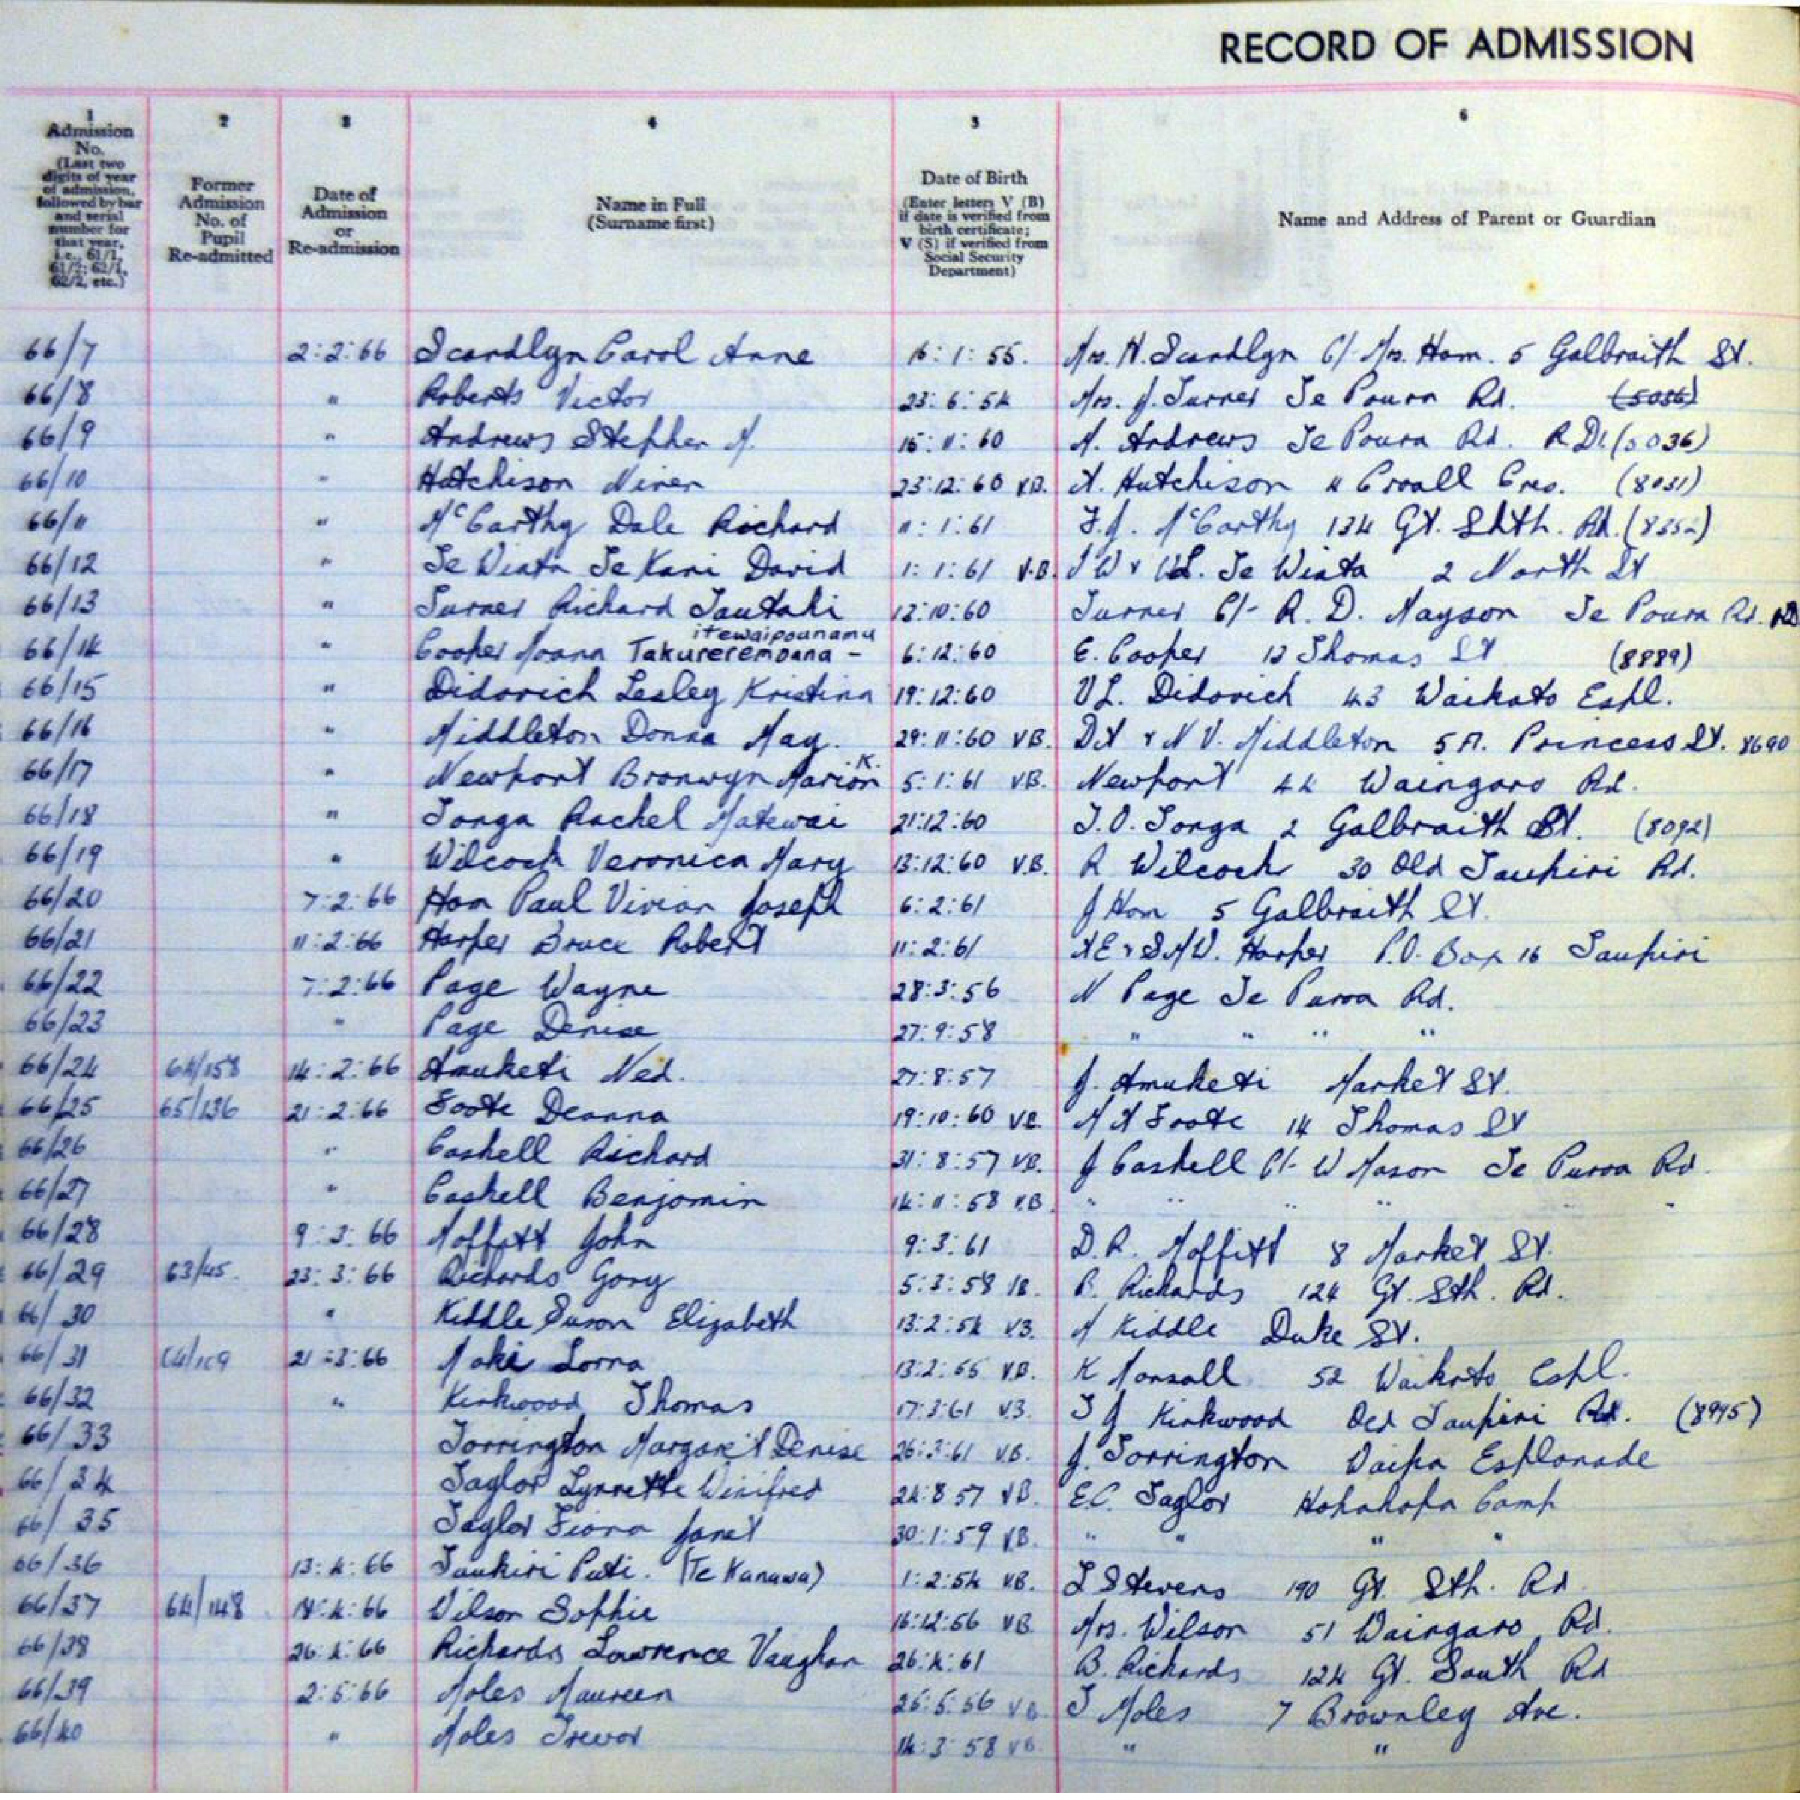 RECORD OF ADMISSION
1 2 3 4 5 6
Admission No. (Last two digits of year of admission, followed by bar and serial number for that year, i.e., 61/1, 61/2; 62/1, 62/2, etc.)
Former Admission No. of Pupil Re-admitted
Date of Admission or Re-admission
Name in Full (Surname first)
Date of Birth (Enter letters V (B) if date is verified from birth certificate; V (S) if verified from Social Security Department)
Name and Address of Parent or Guardian
66/7 2:2:66 Scandlyn Carol Anne 16:1:55. Mrs. N. Scandlyn C/- Mrs. Ham. 5 Galbraith St.
66/8 " Roberts Victor 23:6:54 Mrs. J. Turner Te Poura Rd.
66/9 " Andrews Stephen M. 15:11:60 M. Andrews Te Poura Rd. R.D.1.
66/10 " Hutchison Niven 23:12:60 V.B. Hutchison 4 Croall Cres. (8031)
66/11 " McCarthy Dale Richard 11:1:61 F.J. McCarthy 124 Gt. Sth. Rd.
66/12 " Te Wiata Te Kani David 1:1:61 V.B. Te Wiata 2 North St
66/13 " Turner Richard Tautahi 12:10:60 Turner C/- R. D. Mayson Te Poura Rd. RD
66/14 " Cooper Moana Takurerempana - itewaipounamu 6:12:60 E. Cooper 12 Thomas St (8889)
66/15 " Didovich Lesley Kristina 19:12:60 V L. Didovich 43 Waikato Espl.
66/16 " Middleton Donna May. 29:11:60 V.B. Middleton 5A. Princess St. 8690
66/17 " Newport Bronwyn Marion K. 5:1:61 V.B. Newport 44 Waingaro Rd.
66/18 " Tonga Rachel Matewai 21:12:60 T.O. Tonga 2 Galbraith St. (8092)
66/19 " Wilcock Veronica Mary 13:12:60 V.B. R Wilcock 30 Old Taupiri Rd.
66/20 7:2:66 Ham Paul Vivian Joseph 6:2:61 J Ham 5 Galbraith St.
66/21 11:2:66 Harper Bruce Robert 11:2:61 Harper P.O. Box 16 Taupiri
66/22 7:2:66 Page Wayne 28:3:56 N Page Te Puroa Rd.
66/23 " Page Denise 27:9:58 " " " "
66/24 64/158 14:2:66 Amuketi Ned. 27:8:57 J. Amuketi Market St.
66/25 65/136 21:2:66 Foote Deanna 19:10:60 V.B. Foote 14 Thomas St
66/26 " Cashell Richard 31:8:57 V.B. J Cashell C/- W Mason Te Puroa Rd.
66/27 " Cashell Benjamin 14:11:58 V.B. " " " " "
66/28 9:3:66 Moffitt John 9:3:61 D.R. Moffitt 8 Market St.
66/29 63/45. 23:3:66 Richards Gary 5:3:58 B. Richards 124 Gt. Sth. Rd.
66/30 " Kiddle Susan Elizabeth 13:2:54 V.B. Kiddle Duke St.
66/31 64/109 21:3:66 Moki Lorna 13:2:55 V.B. K Mansall 52 Waikato Espl.
66/32 " Kirkwood Thomas 17:3:61 V.B. T J Kirkwood Old Taupiri Rd. (8945)
66/33 Torrington Margaret Denise 26:3:61 V.B. J. Torrington Waipa Esplanade
66/34 Taylor Lynnette Winifred 24:8:57 V.B. E.C. Taylor Hopuhopu Camp
66/35 Taylor Fiona Janet 30:1:59 V.B. " " " "
66/36 13:4:66 Taukiri Puti. (Te Kanawa) 1:2:54 V.B. L Stevens 190 Gt. Sth. Rd
66/37 64/148 18:4:66 Wilson Sophie 16:12:56 V.B. Mrs. Wilson 51 Waingaro Rd.
66/38 26:4:66 Richards Lawrence Vaughan 26:4:61 B. Richards 124 Gt. South Rd
66/39 2:5:66 Moles Maureen 25:5:56 V.B. T Moles 7 Brownley Ave.
66/40 " Moles Trevor 14:3:58 V.B. " "